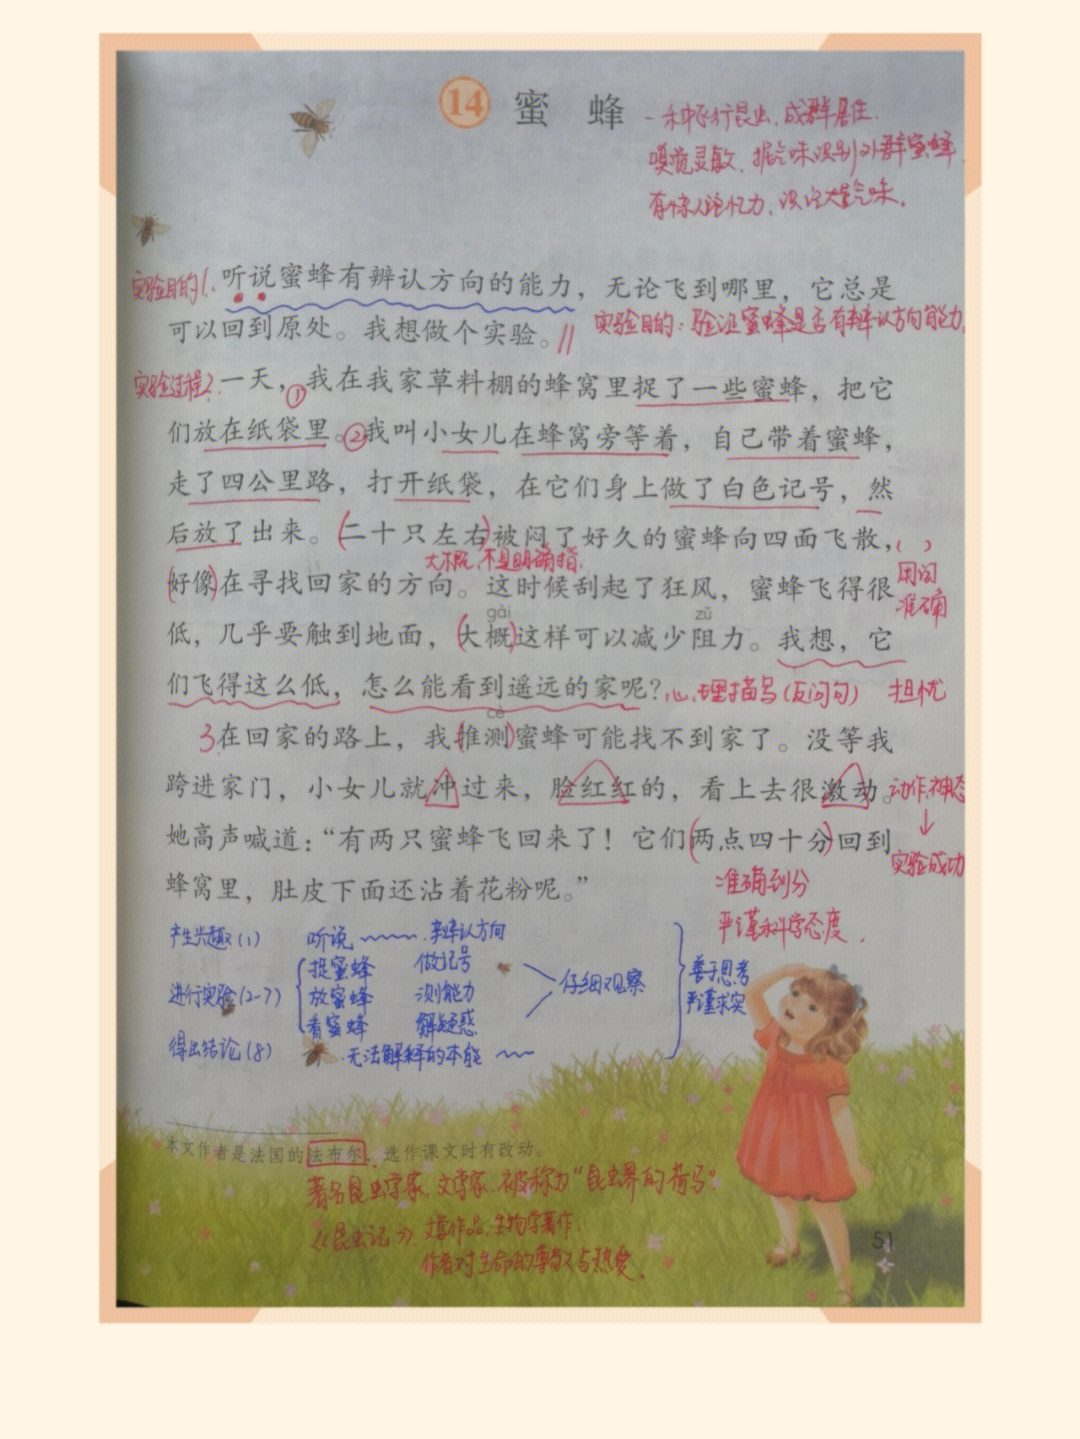 14 蜜 蜂
一种飞行昆虫，成群居住.
嗅觉灵敏、据气味识别外群蜜蜂.
有惊人记忆力，
实验目的1. 听说蜜蜂有辨认方向的能力，无论飞到哪里，它总是
可以回到原处。我想做个实验。
实验目的：验证蜜蜂是否有辨认方向能力.
实验过程2. 一天，①我在我家草料棚的蜂窝里捉了一些蜜蜂，把它
们放在纸袋里。②我叫小女儿在蜂窝旁等着，自己带着蜜蜂，
走了四公里路，打开纸袋，在它们身上做了白色记号，然
后放了出来。(二十只左右)被闷了好久的蜜蜂向四面飞散，
大概，不是明确指.
( )
用词
准确
(好像)在寻找回家的方向。这时候刮起了狂风，蜜蜂飞得很
gài zǔ
低，几乎要触到地面，(大概)这样可以减少阻力。我想，它
们飞得这么低，怎么能看到遥远的家呢？
心理描写(反问句) 担忧
cè
3.在回家的路上，我(推测)蜜蜂可能找不到家了。没等我
跨进家门，小女儿就冲过来，脸红红的，看上去很激动。
动作、神态
↓
实验成功
她高声喊道：“有两只蜜蜂飞回来了！它们(两点四十分)回到
蜂窝里，肚皮下面还沾着花粉呢。”
准确到分
严谨科学态度.
产生兴趣(1) 听说 辨认方向
进行实验(2-7) 捉蜜蜂 做记号
放蜜蜂 测能力
看蜜蜂 解疑惑
仔细观察
善于思考
严谨求实
得出结论(8) 无法解释的本能
本文作者是法国的法布尔，选作课文时有改动。
著名昆虫学家、文学家、被称为“昆虫界的荷马”.
《昆虫记》、文学作品、生物学著作.
作者对生命的尊敬与热爱.
51